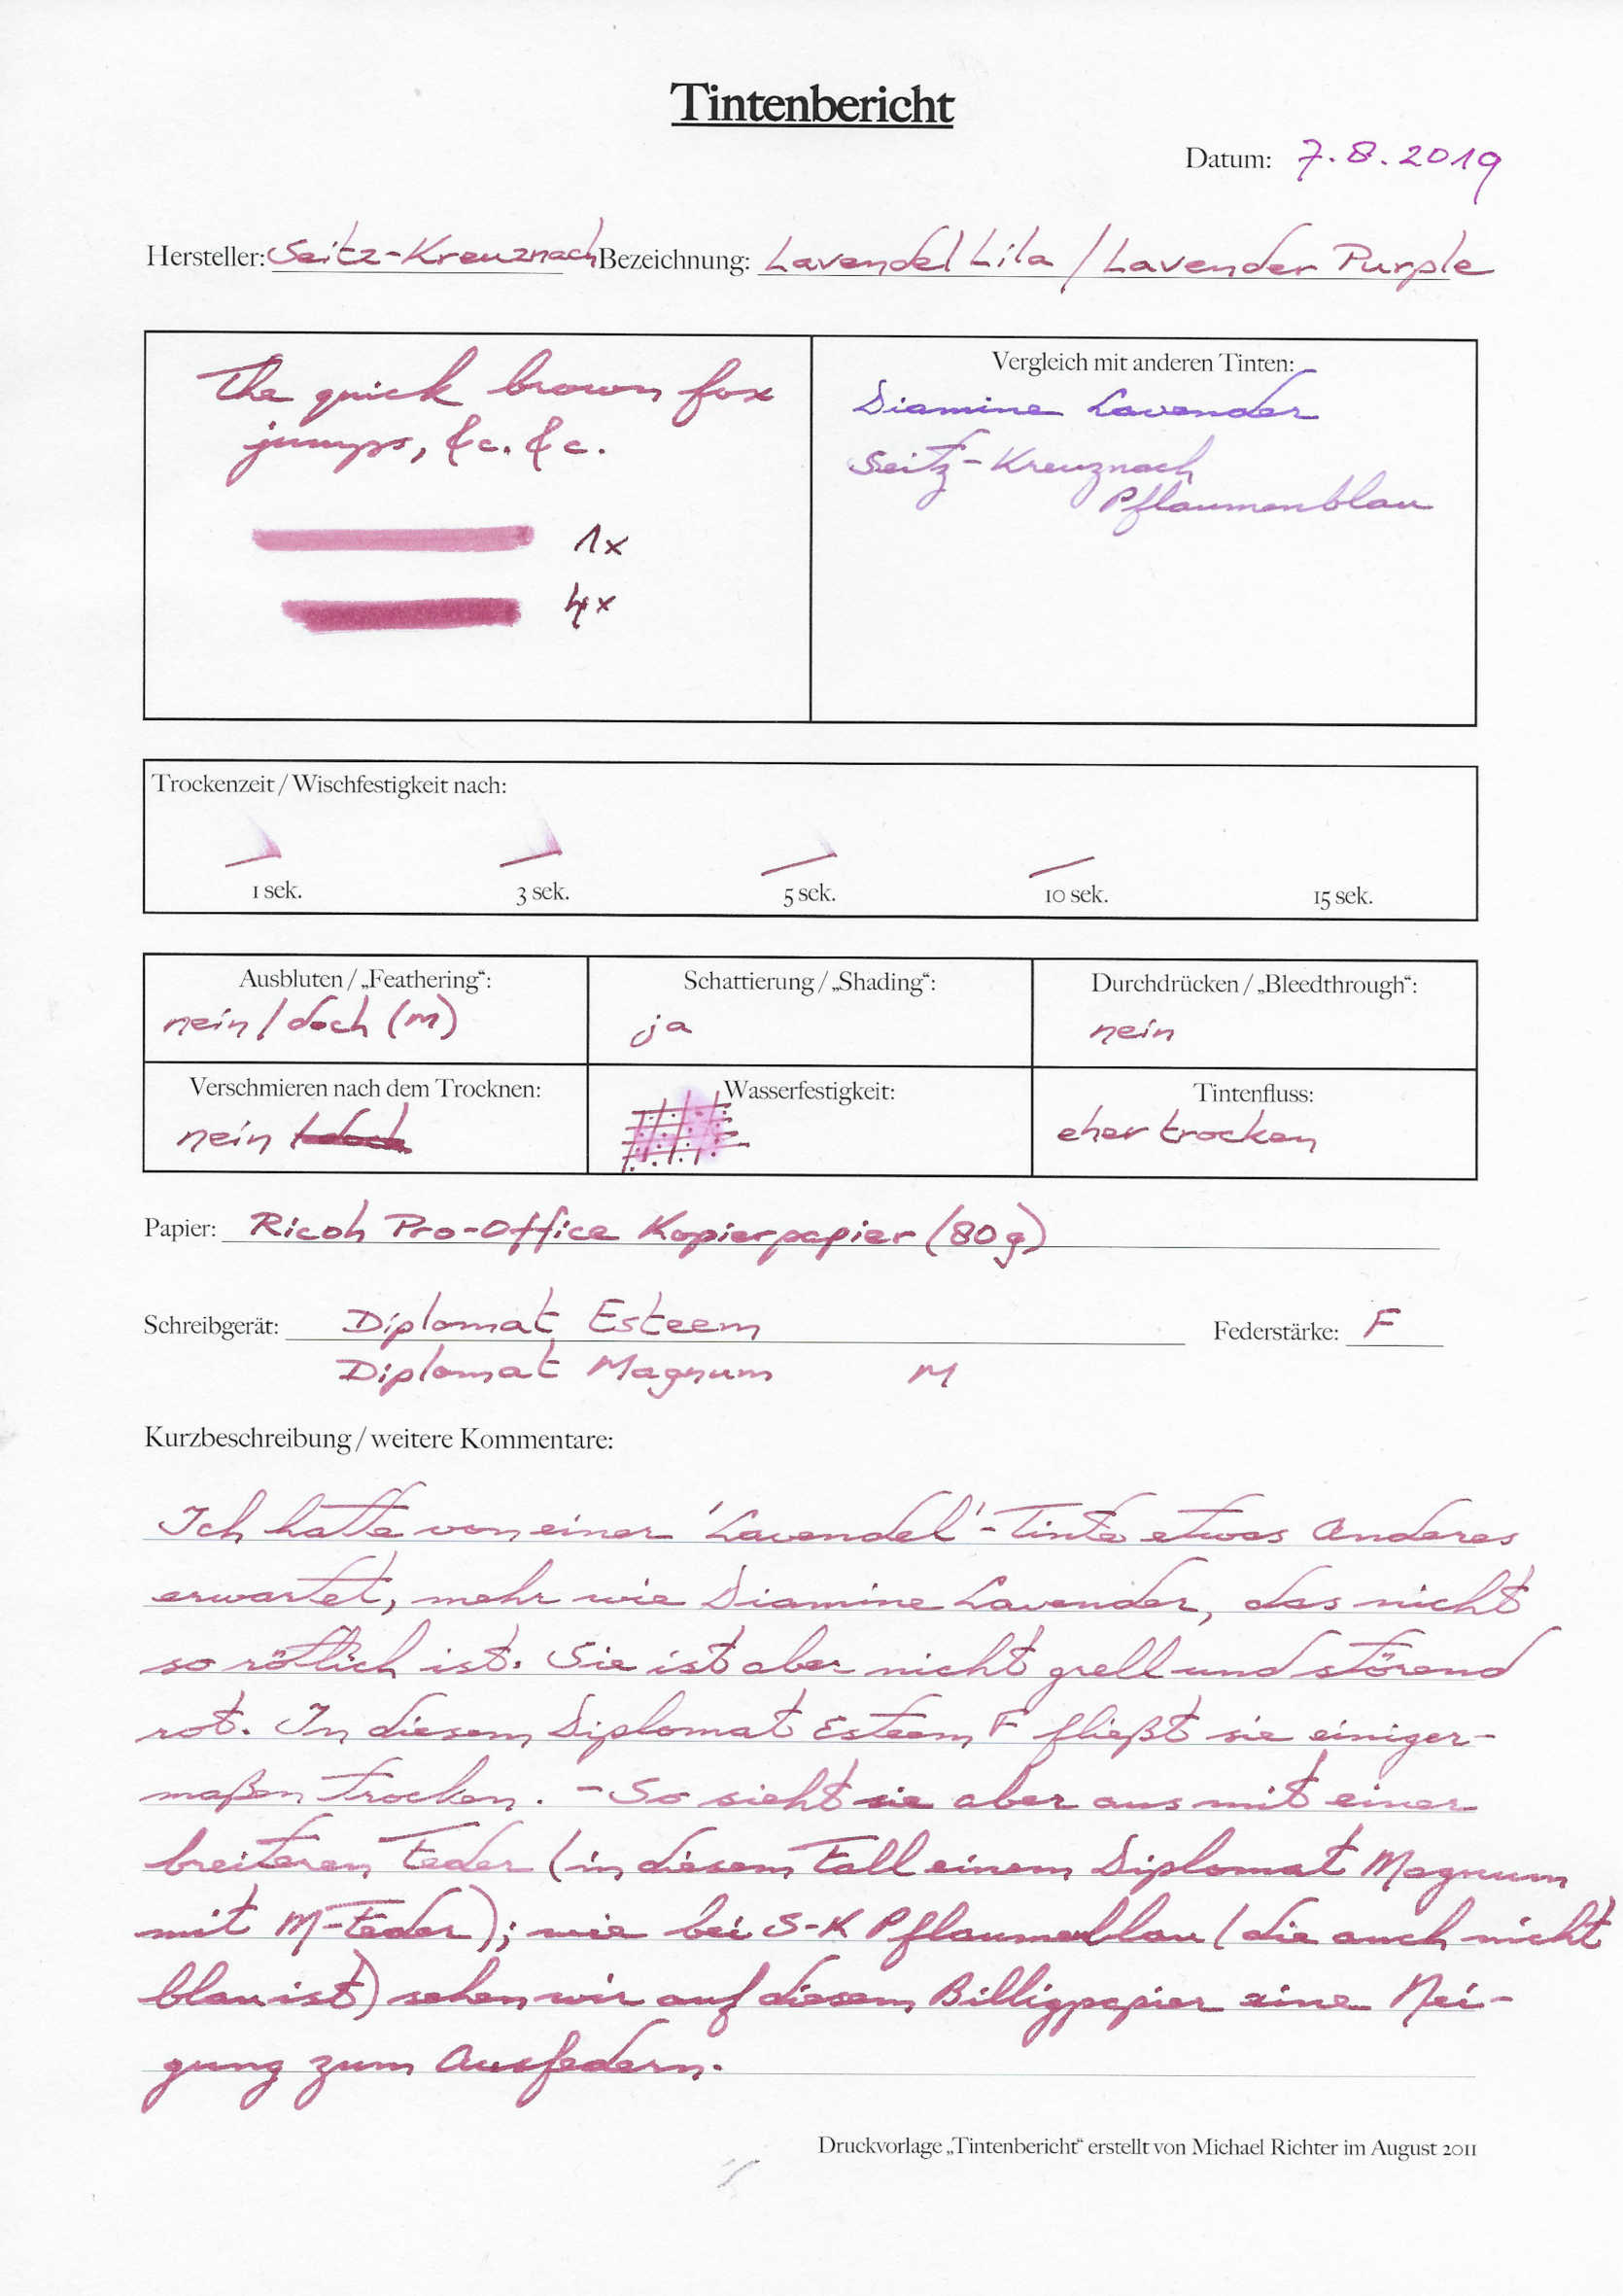 Tintenbericht
Datum: 7.8.2019
Hersteller: Seitz-Kreuznach Bezeichnung: Lavendel Lila / Lavender Purple
The quick brown fox
jumps, &c. &c.
1x
4x
Vergleich mit anderen Tinten:
Diamine Lavender
Seitz-Kreuznach
Pflaumenblau
Trockenzeit / Wischfestigkeit nach:
1 sek. 3 sek. 5 sek. 10 sek. 15 sek.
Ausbluten / „Feathering“: Schattierung / „Shading“: Durchdrücken / „Bleedthrough“:
nein / doch (M) ja nein
Verschmieren nach dem Trocknen: Wasserfestigkeit: Tintenfluss:
nein / doch eher trocken
Papier: Ricoh Pro-Office Kopierpapier (80g)
Schreibgerät: Diplomat Esteem Federstärke: F
Diplomat Magnum M
Kurzbeschreibung / weitere Kommentare:
Ich hatte von einer 'Lavendel'-Tinte etwas Anderes
erwartet, mehr wie Diamine Lavender, das nicht
so rötlich ist. Sie ist aber nicht grell und störend
rot. In diesem Diplomat Esteem F fließt sie einiger-
maßen trocken. - So sieht sie aber aus mit einer
breiteren Feder (in diesem Fall einem Diplomat Magnum
mit M-Feder); wie bei S-K Pflaumenblau (die auch nicht
blau ist) sehen wir auf diesem Billigpapier eine Nei-
gung zum Ausfedern.
Druckvorlage „Tintenbericht“ erstellt von Michael Richter im August 2011